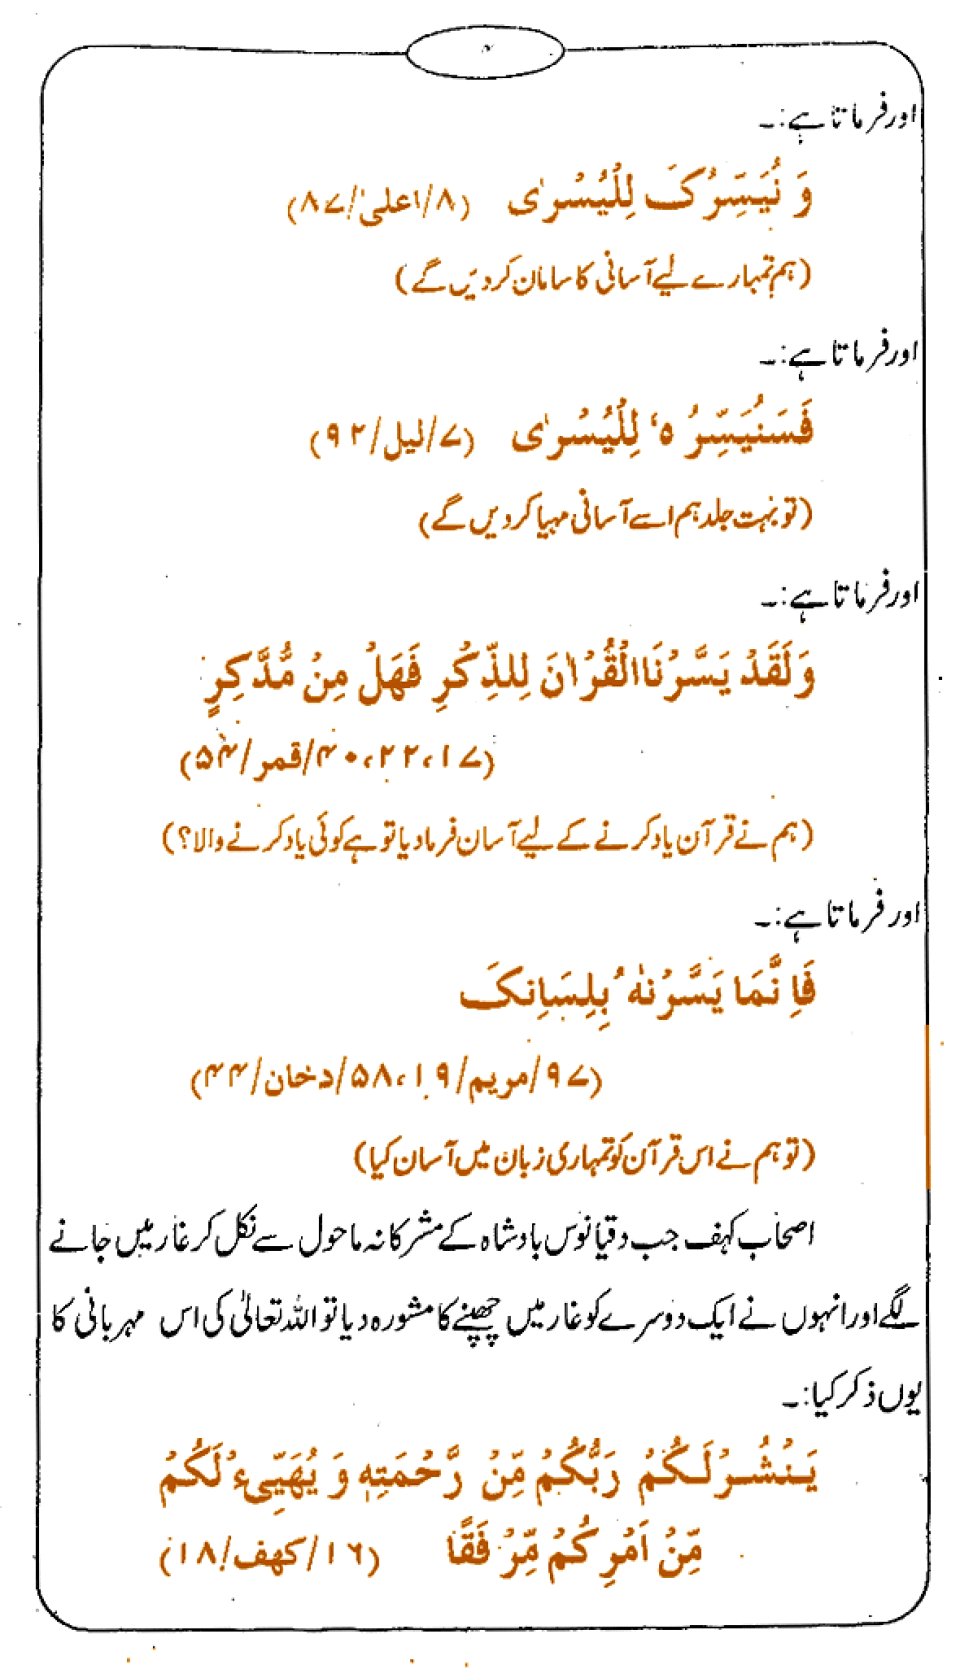 اور فرماتا ہے:۔
وَ نُيَسِّرُكَ لِلْيُسْرٰى (۸/اعلیٰ/۸۷)
(ہم تمہارے لیے آسانی کا سامان کردیں گے)
اور فرماتا ہے:۔
فَسَنُيَسِّرُ هٗ لِلْيُسْرٰى (۷/لیل/۹۲)
(تو بہت جلد ہم اسے آسانی مہیا کردیں گے)
اور فرماتا ہے:۔
وَلَقَدْ يَسَّرْنَا الْقُرْاٰنَ لِلذِّكْرِ فَهَلْ مِنْ مُّدَّكِرٍ
(۱۷،۲۲،۴۰/قمر/۵۴)
(ہم نے قرآن یاد کرنے کے لیے آسان فرمادیا تو ہے کوئی یاد کرنے والا؟)
اور فرماتا ہے:۔
فَاِنَّمَا يَسَّرْنٰهُ بِلِسَانِکَ
(۹۷/مریم/۱۹،۵۸/دخان/۴۴)
(تو ہم نے اس قرآن کو تمہاری زبان میں آسان کیا)
اصحاب کہف جب دقیانوس بادشاہ کے مشرکانہ ماحول سے نکل کر غار میں جانے
لگے اور انہوں نے ایک دوسرے کو غار میں چھپنے کا مشورہ دیا تو اللہ تعالیٰ کی اس مہربانی کا
یوں ذکر کیا:۔
يَنْشُرْلَكُمْ رَبُّكُمْ مِّنْ رَّحْمَتِهٖ وَ يُهَيِّیءْ لَكُمْ
مِّنْ اَمْرِكُمْ مِّرْفَقًا (۱۶/کهف/۱۸)